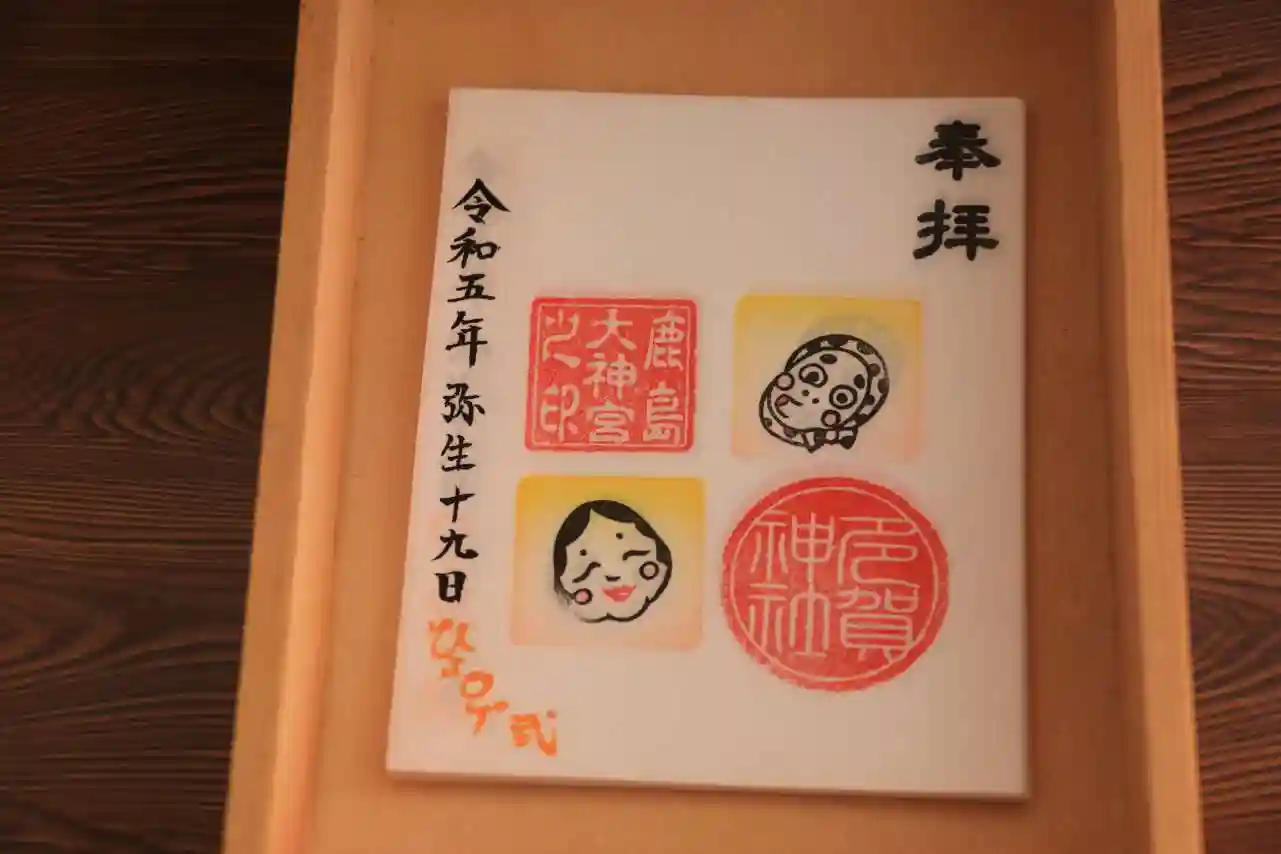 奉拝
鹿島
大神宮
之印
賀
神社
令和五年 弥生十九日